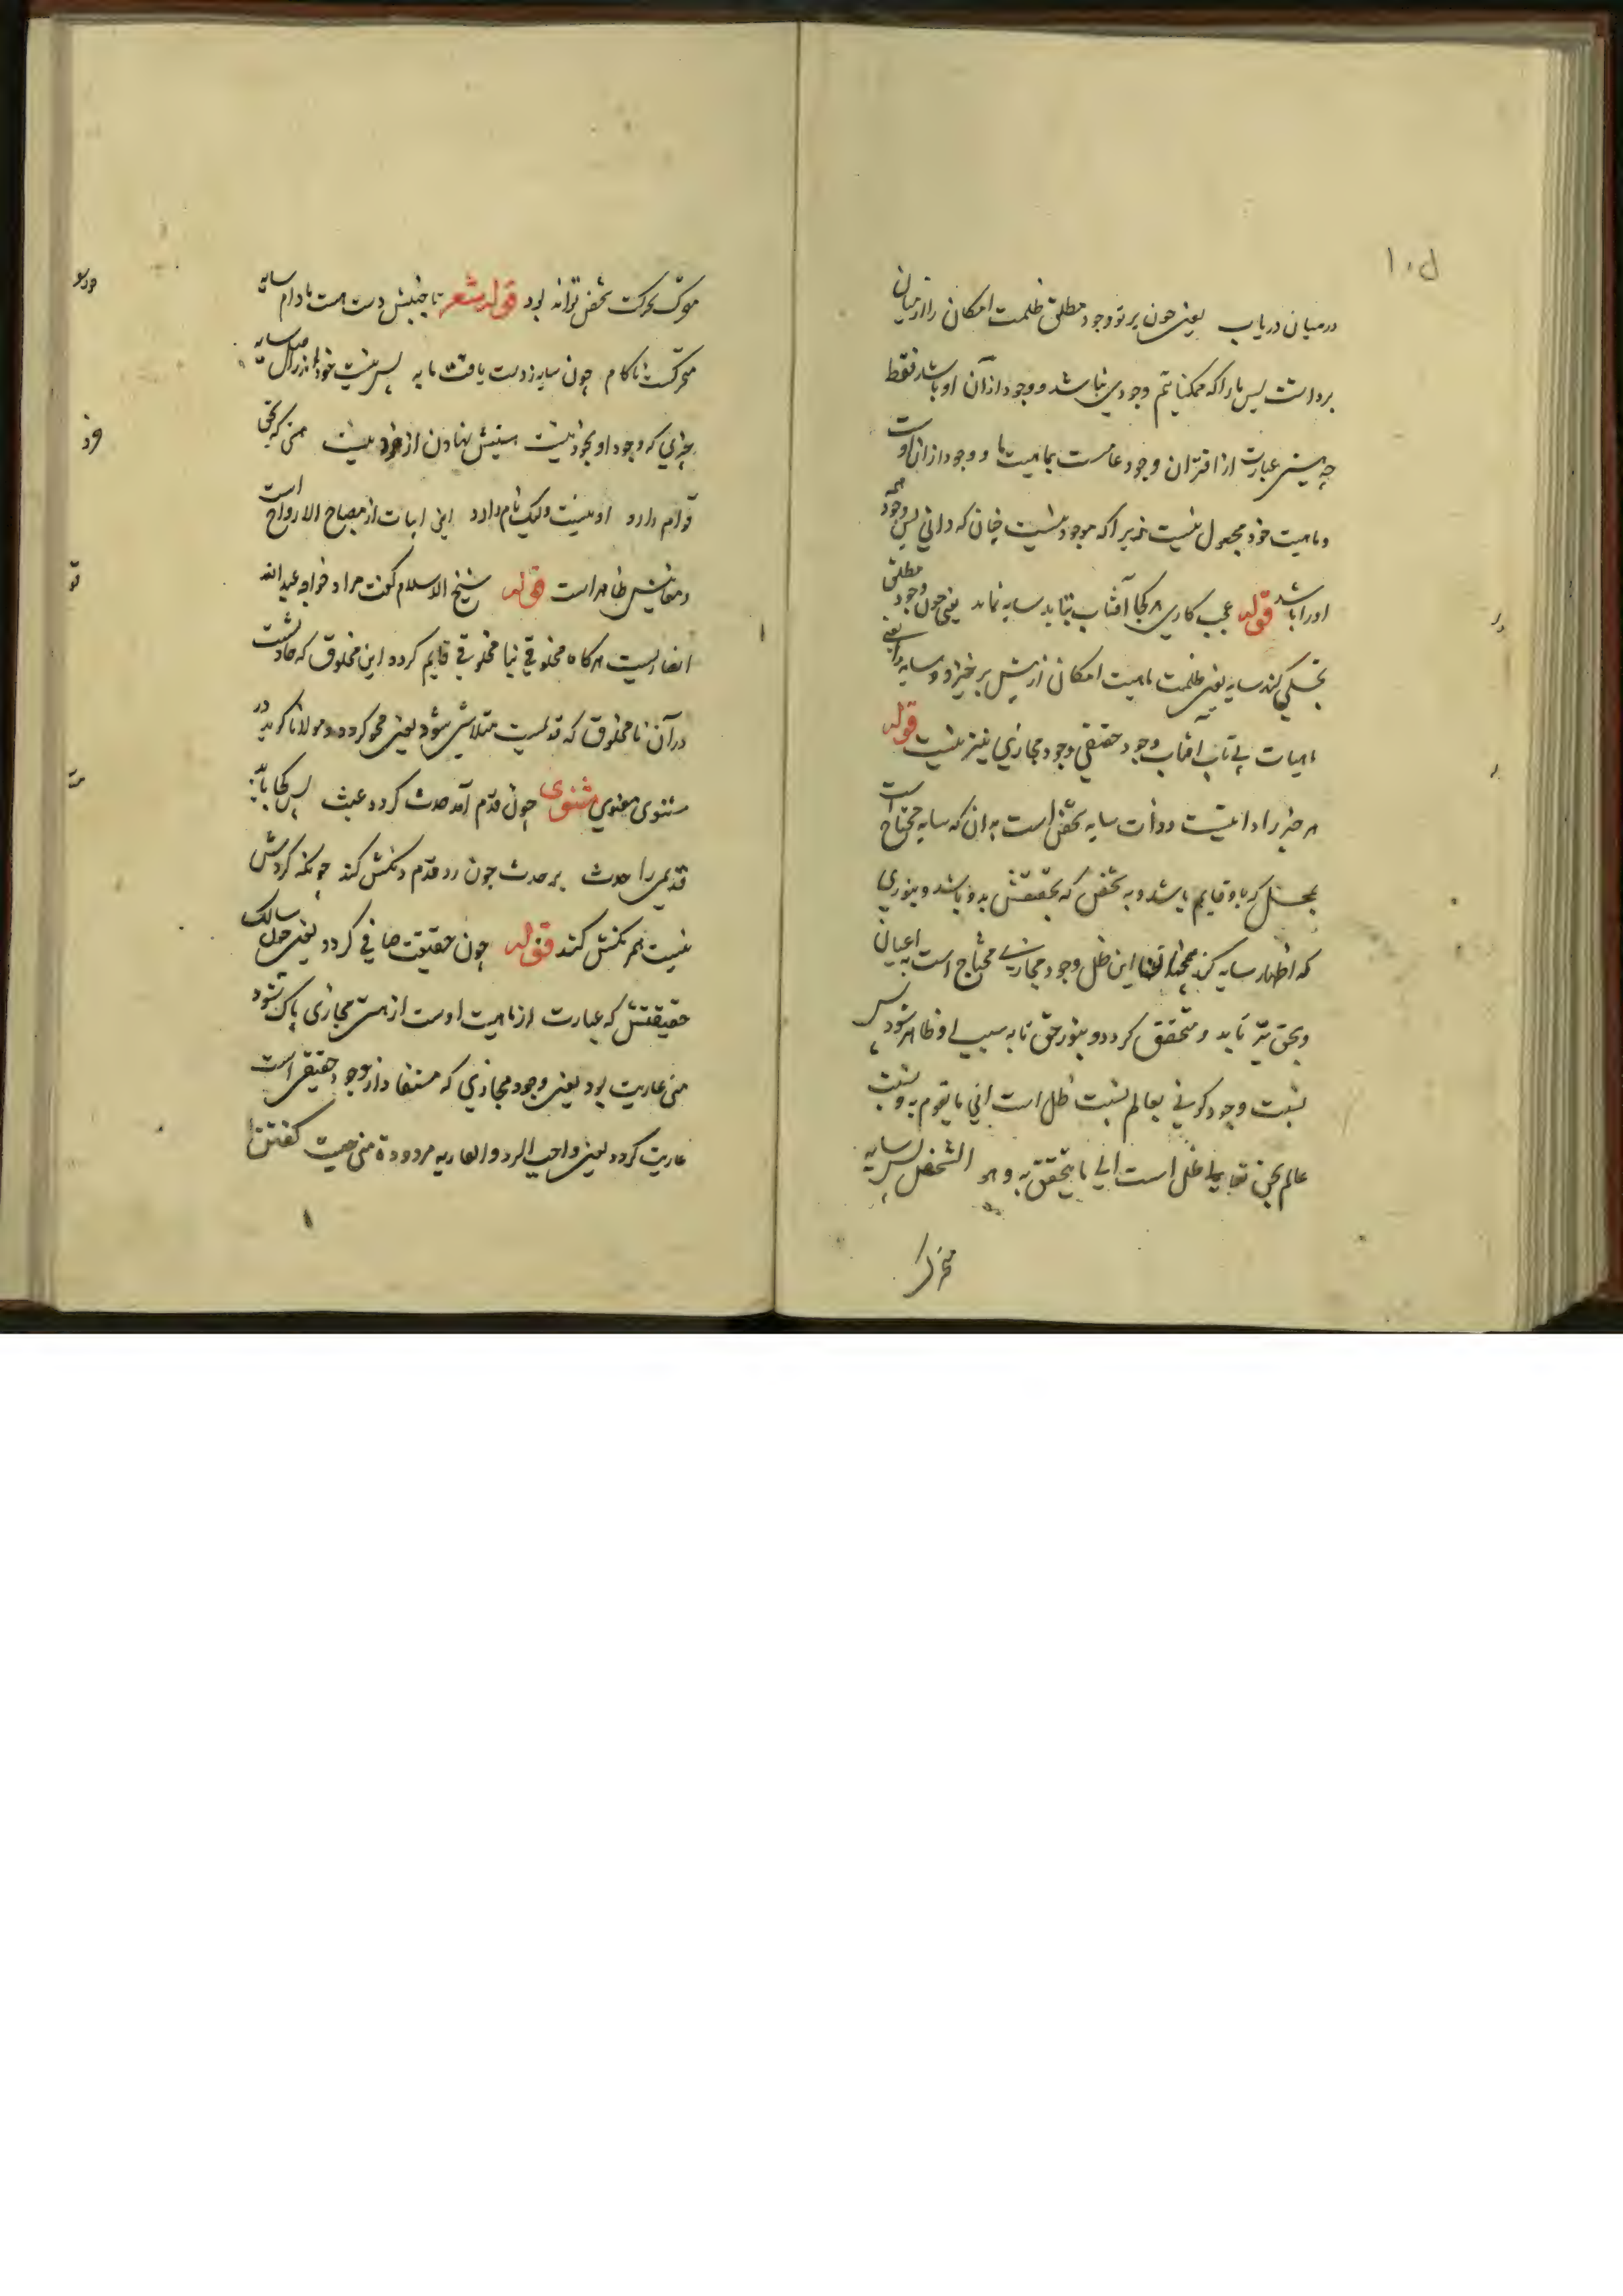 درمیان دریاب یعنی چون پرتو وجود مطلق ظلمت امکان را از میان
برداشت پس ما را که ممکناتیم وجودی نباشد و وجود از آن او باشد فقط
چه هستی عبارت از اقتران وجود عامست بماهیت ما و وجود از ان اوست
و ماهیت خود مجعول نیست زیرا که موجود نیست چنان که دانی پس وجود
او را باشد قوله عجب کاری هر کجا آفتاب بتابد سایه نماند یعنی چون وجود مطلق
تجلی کند سایه یعنی ظلمت ماهیت امکان از پیش برخیزد و سایه را یعنی
ماهیات بی تاب آفتاب وجود حقیقی وجود مجازی نیز نیست قوله
هر چیز را داعیتیست و ذات سایه شخص است بدان که سایه محتاج است
بمحل که باو قایم باشد و به شخص که تحققش بدو باشد و بنوری
که اظهار سایه کند این ظل وجود مجازی محتاج است به اعیان
و بحق تا بدو متحقق گردد و بنور حق تا به سبب او ظاهر شود پس
نسبت وجود کونی بعالم نسبت ظل است الی ما یقوم به و نسبت
عالم بحق تعالی ظل است الی ما یتحقق به و هو الشخص پس سایه
متحرک
متحرک بحرکت شخص تواند بود قوله شعر تا جنبش دست هست مادام سایه
متحرکست ناکام چون سایه ز دست یافت مایه پس نیست خود اندر اصل سایه
چیزی که وجود او بخود نیست هستیش نهادن از خرد نیست هستی که بحق
قوام دارد او نیست ولیک نام دارد این ابیات از مصباح الارواح است
و معانیش ظاهر است قوله شیخ الاسلام گفت مراد خواجه عبدالله
انصاریست هرگاه مخلوقی بنا مخلوقی قایم گردد این مخلوق که حادثست
در آن نا مخلوق که قدیمست متلاشی شود یعنی محو گردد و مولانا گوید در
مثنوی معنوی مثنوی چون قدم آمد حدث گردد عبث پس کجا باشد
قدیمی را حدث بر حدث چون زد قدم دنگش کند چونکه کردش
نیست هم رنگش کند قوله چون حقیقت صافی گردد یعنی چون سالک
حقیقتش که عبارت از ماهیت اوست از هستی مجازی پاک شود
منی عاریت بود یعنی وجود مجازی که مستفاد از وجود حقیقی است
عاریت گردد یعنی واجب الرد والعاریه مردودة منی چیست گفتن